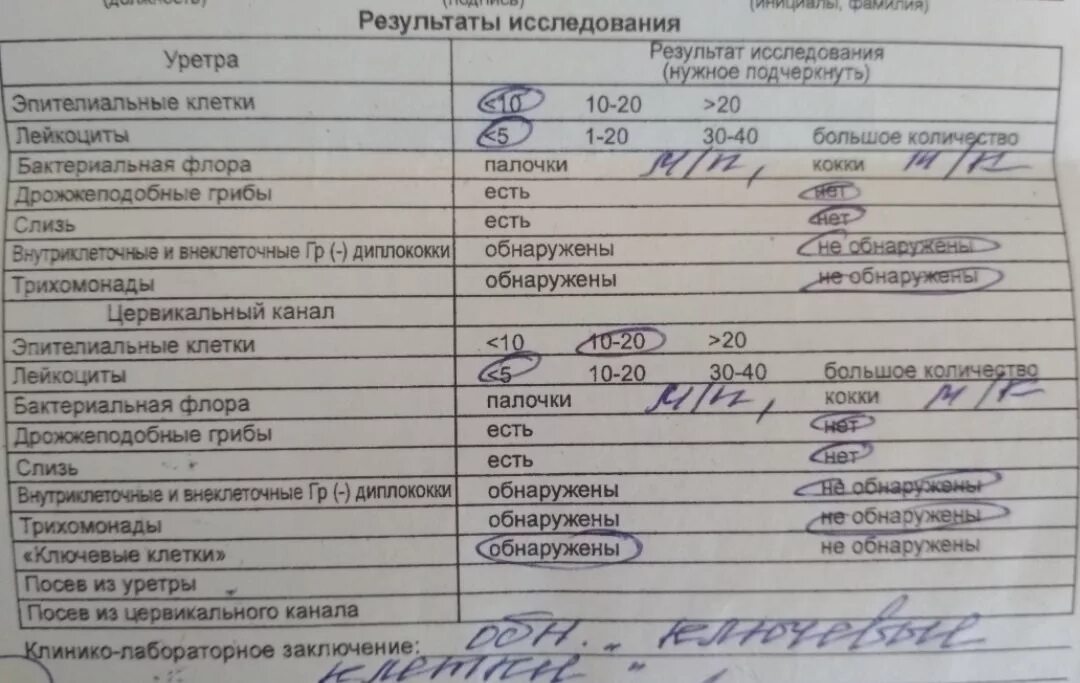 (должность) (подпись) (инициалы, фамилия)
Результаты исследования
Уретра Результат исследования
(нужное подчеркнуть)
Эпителиальные клетки <10 10-20 >20
Лейкоциты <5 1-20 30-40 большое количество
Бактериальная флора палочки м/п, кокки м/к
Дрожжеподобные грибы есть нет
Слизь есть нет
Внутриклеточные и внеклеточные Гр (-) диплококки обнаружены не обнаружены
Трихомонады обнаружены не обнаружены
Цервикальный канал
Эпителиальные клетки <10 10-20 >20
Лейкоциты <5 10-20 30-40 большое количество
Бактериальная флора палочки м/п, кокки м/к
Дрожжеподобные грибы есть нет
Слизь есть нет
Внутриклеточные и внеклеточные Гр (-) диплококки обнаружены не обнаружены
Трихомонады обнаружены не обнаружены
«Ключевые клетки» обнаружены не обнаружены
Посев из уретры
Посев из цервикального канала
Клинико-лабораторное заключение: обн. „ ключевые
клетки "